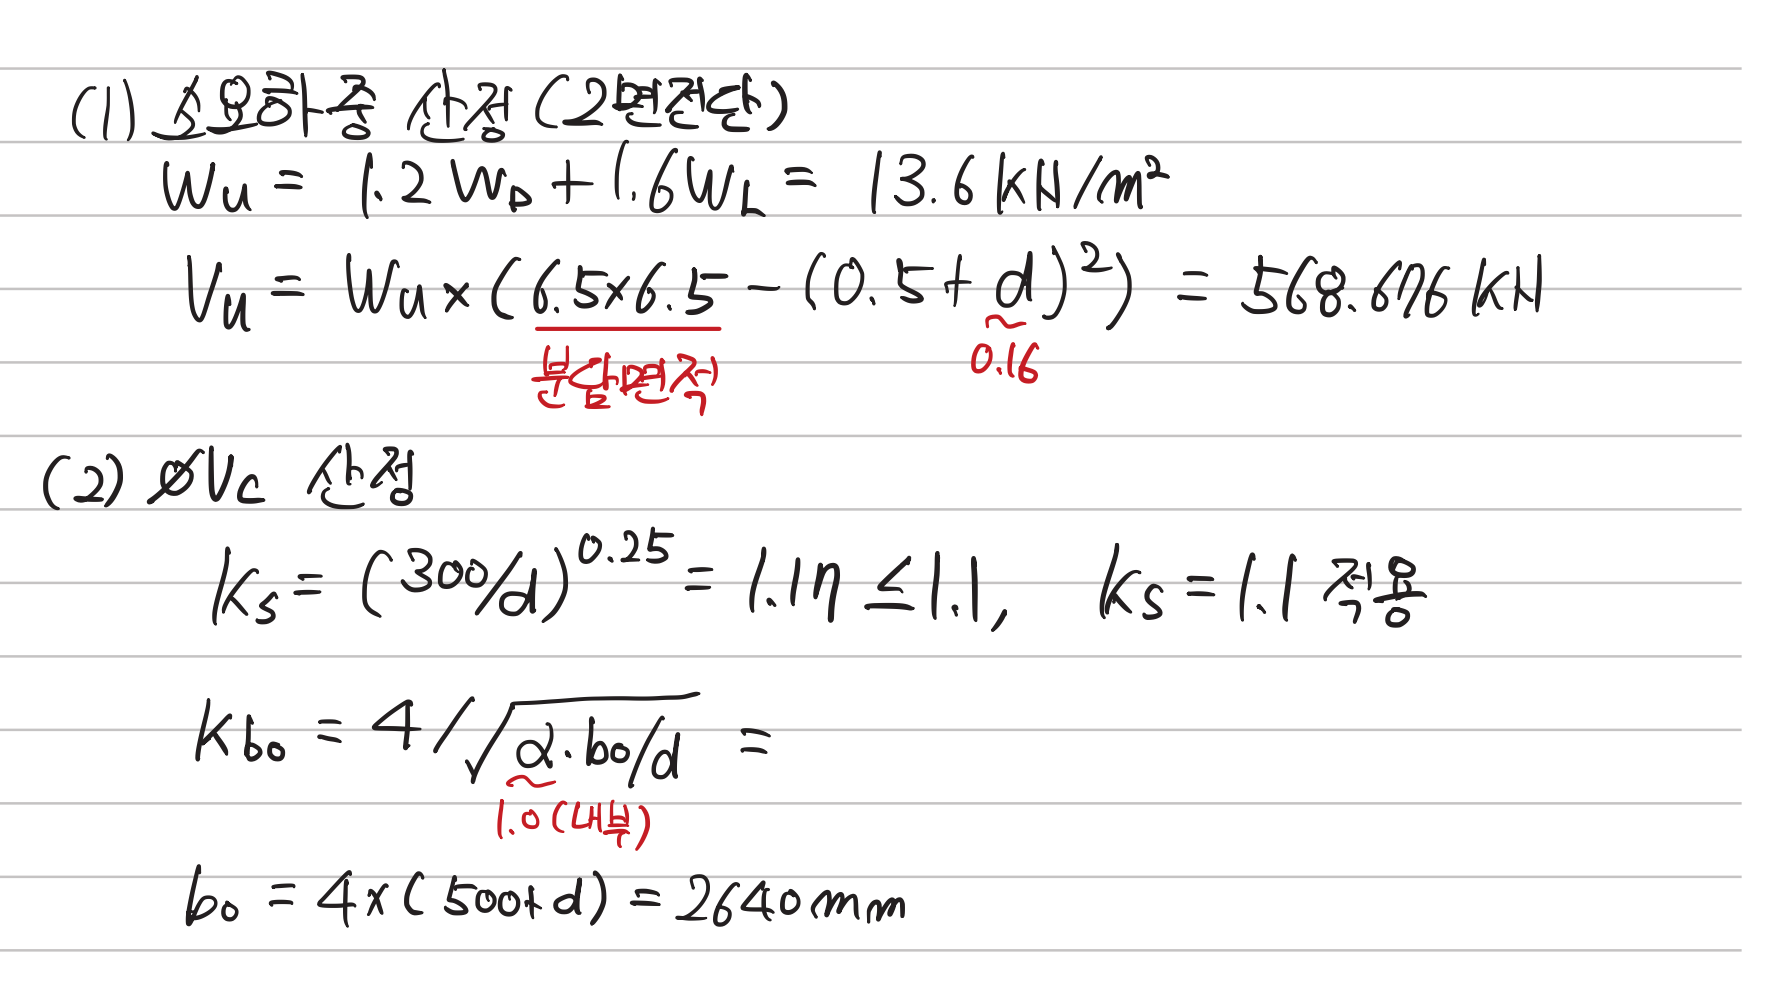 (1) 소요하중 산정 (2면전단)
Wu = 1.2 WD + 1.6WL = 13.6 kN/m²
Vu = Wu × (6.5×6.5 - (0.5 + d)²) = 568.676 kN
분담면적
0.16
(2) ∅Vc 산정
ks = (300/d)^0.25 = 1.17 ≤ 1.1, ks = 1.1 적용
kbo = 4/√α·bo/d =
1.0 (내부)
bo = 4×(500+d) = 2640mm